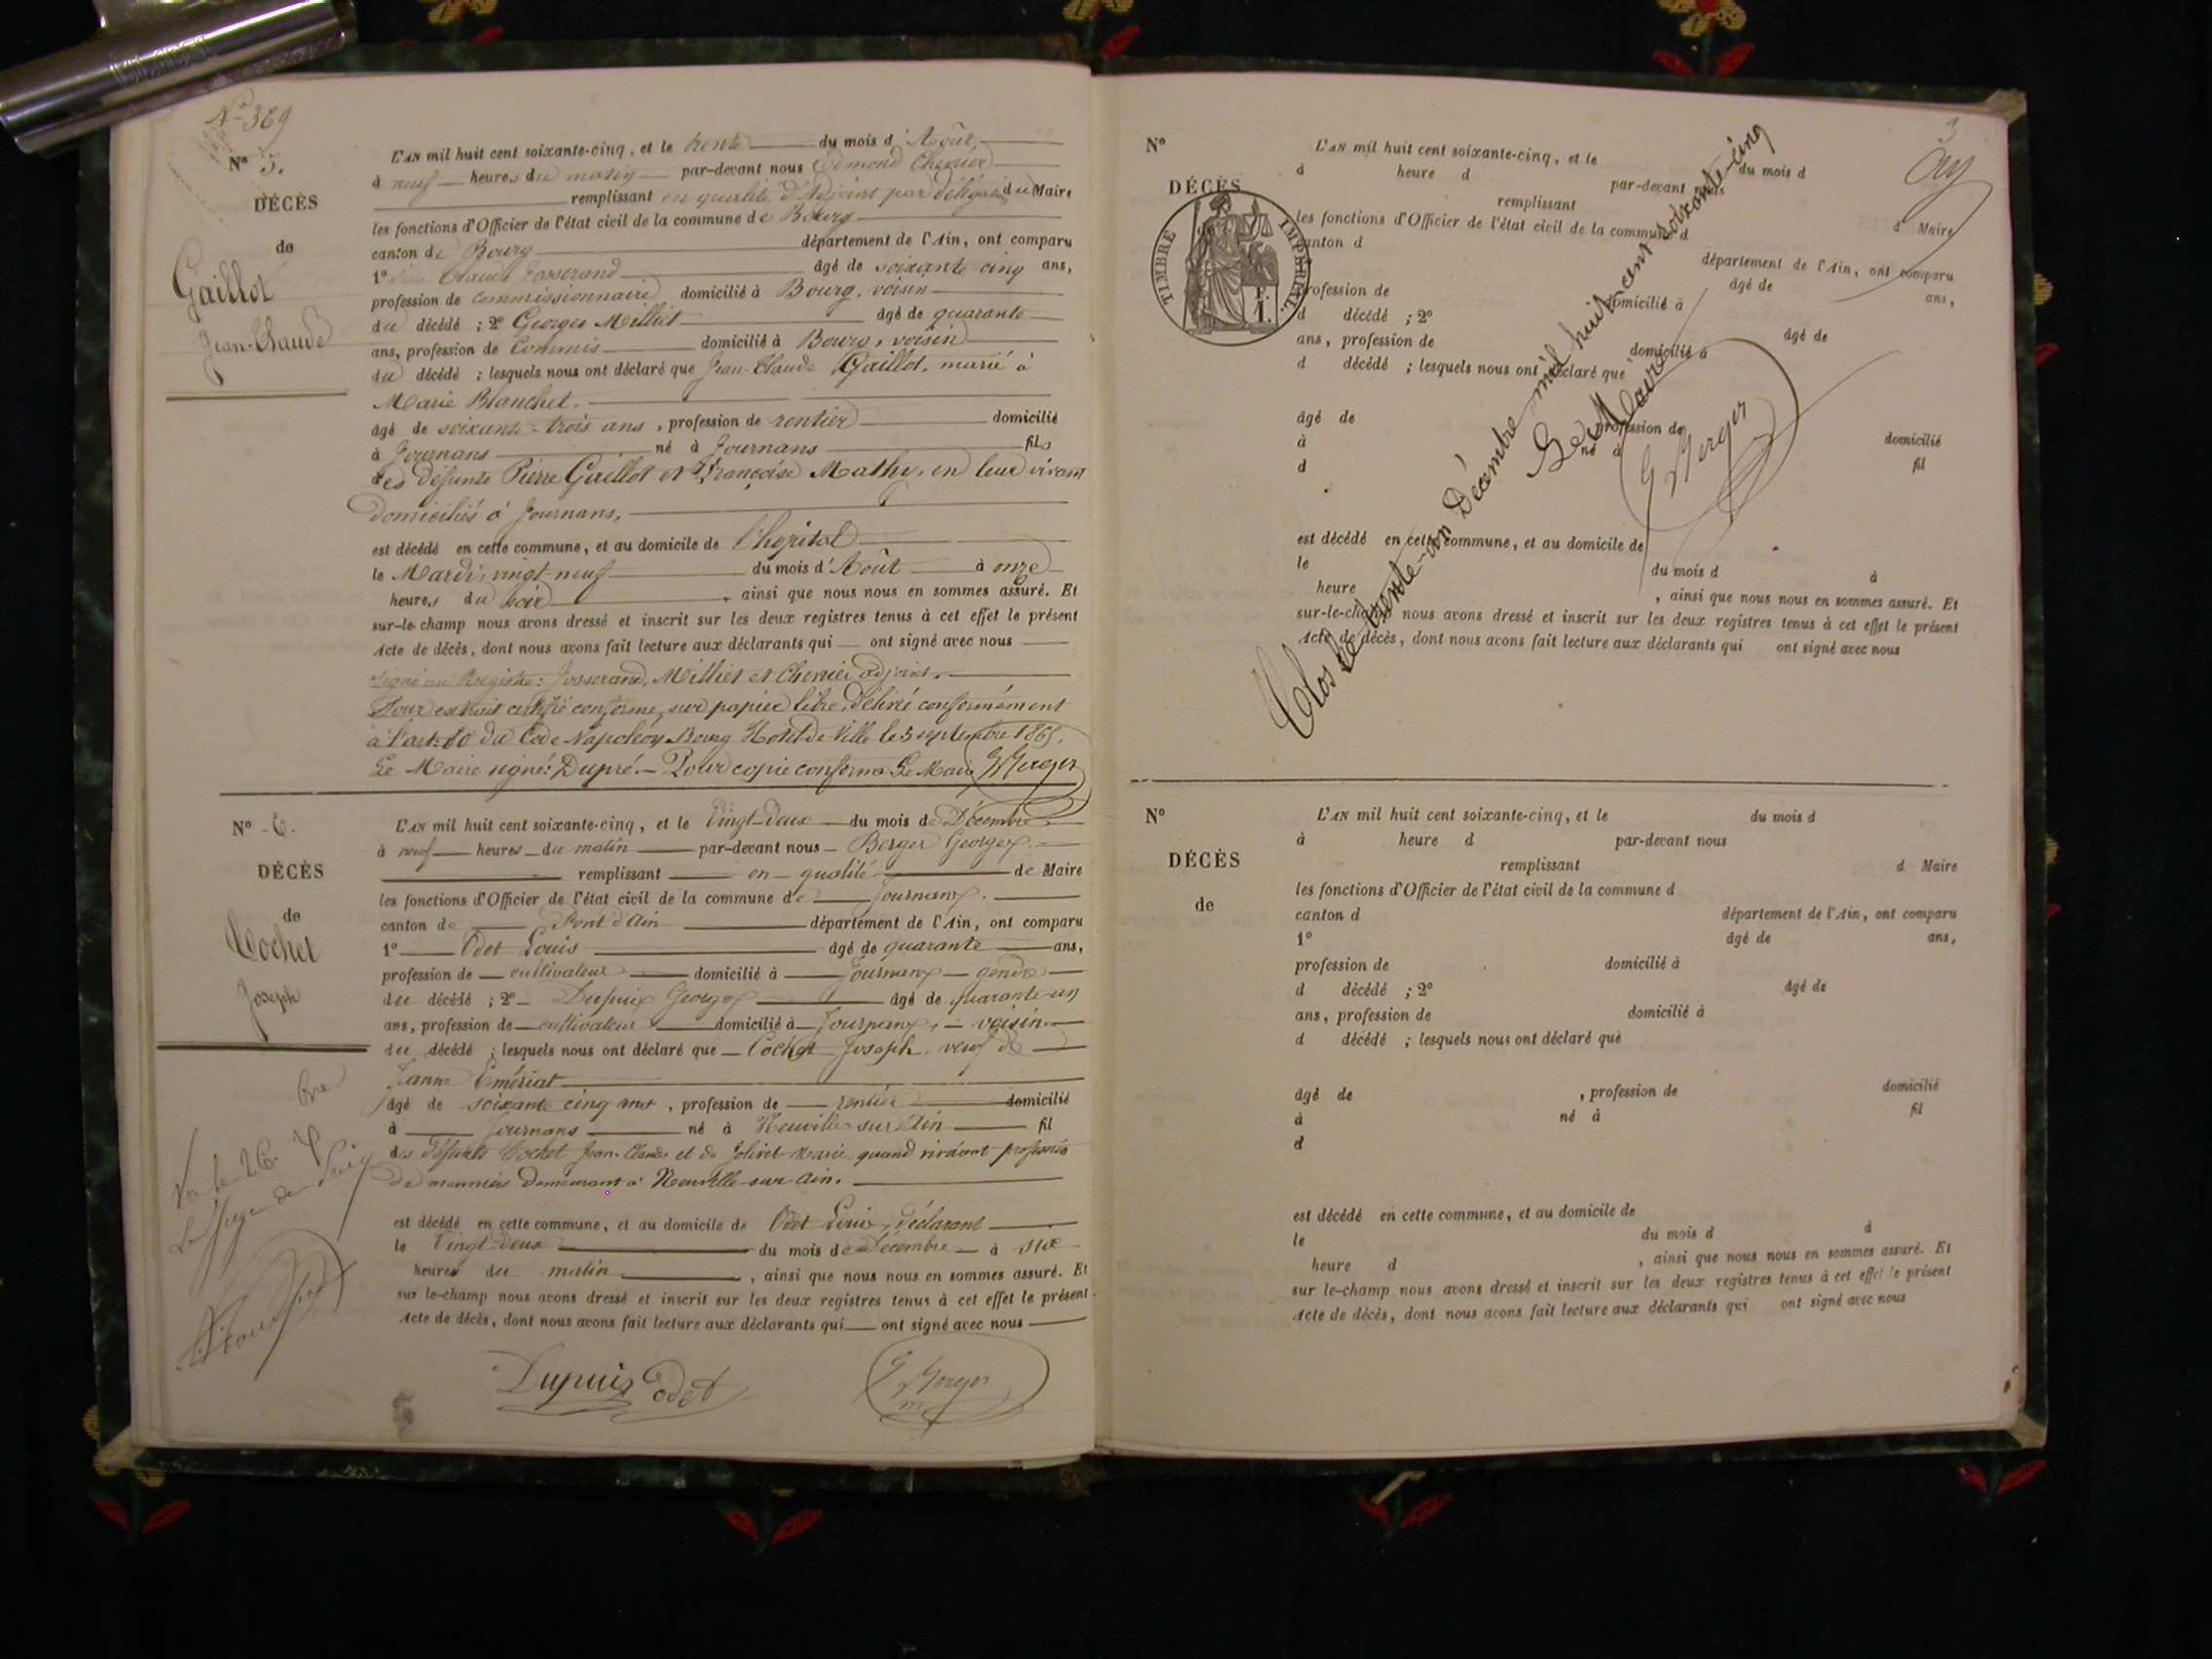 N° 369
N° 5.
DÉCÈS
de
Gaillot
Jean-Claude
L'AN mil huit cent soixante-cinq, et le trente du mois d'Août,
à neuf heures du matin par-devant nous Edmond Chevrier
remplissant en qualité d'Adjoint par délégation du Maire
les fonctions d'Officier de l'état civil de la commune de Bourg
canton de Bourg département de l'Ain, ont comparu
1° Claude Josserand âgé de soixante cinq ans,
profession de commissionnaire domicilié à Bourg, voisin
du décédé ; 2° Georges Milliet âgé de quarante
ans, profession de Commis domicilié à Bourg, voisin
du décédé ; lesquels nous ont déclaré que Jean-Claude Gaillot, marié à
Marie Blanchet,
âgé de soixante-trois ans, profession de rentier domicilié
à Journans né à Journans fils
des défunts Pierre Gaillot et Françoise Mathy, en leur vivant
domiciliés à Journans,
est décédé en cette commune, et au domicile de l'hopital
le Mardi, vingt-neuf du mois d'Août à onze
heures du soir, ainsi que nous nous en sommes assuré. Et
sur-le-champ nous avons dressé et inscrit sur les deux registres tenus à cet effet le présent
Acte de décès, dont nous avons fait lecture aux déclarants qui ont signé avec nous
signé au Registre : Josserand, Milliet et Chevrier adjoint.
Pour extrait certifié conforme, sur papier libre, délivré conformément
à l'art. 80 du Code Napoléon Bourg Hôtel de Ville le 5 septembre 1865.
Le Maire signé : Dupré. — Pour copie conforme Le Maire G Berger
N° 6.
DÉCÈS
de
Cochet
Joseph
L'AN mil huit cent soixante-cinq, et le Vingt-deux du mois de Décembre
à neuf heures du matin par-devant nous Berger Georges
remplissant en qualité de Maire
les fonctions d'Officier de l'état civil de la commune de Journans.
canton de Pont d'ain département de l'Ain, ont comparu
1° Odet Louis âgé de quarante ans,
profession de cultivateur domicilié à Journans gendre
du décédé ; 2° Dupuis Georges âgé de quarante-un
ans, profession de cultivateur domicilié à Journans, voisin
du décédé ; lesquels nous ont déclaré que Cochet Joseph, veuf de
Jeanne Emériat
âgé de soixante cinq ans, profession de rentier domicilié
à Journans né à Neuville sur Ain fil
des défunts Cochet Jean-Claude et de Jolivet Marie quand vivaient
de meuniers demeurant à Neuville-sur-Ain.
est décédé en cette commune, et au domicile de Odet Louis, déclarant
le Vingt-deux du mois de Décembre à six
heures du matin, ainsi que nous nous en sommes assuré. Et
sur le-champ nous avons dressé et inscrit sur les deux registres tenus à cet effet le présent
Acte de décès, dont nous avons fait lecture aux déclarants qui ont signé avec nous
Vu le 26
Le Juge de Paix
Dupuis Odet G Berger
m
3
N°
DÉCÈS
TIMBRE IMPÉRIAL
F.
1.
L'AN mil huit cent soixante-cinq, et le du mois d
à heure d par-devant nous
remplissant d Maire
les fonctions d'Officier de l'état civil de la commune d
canton d département de l'Ain, ont comparu
âgé de ans,
profession de domicilié à
d décédé ; 2° âgé de
ans, profession de domicilié à
d décédé ; lesquels nous ont déclaré que
âgé de profession de domicilié
à né à fil
d
est décédé en cette commune, et au domicile de
le du mois d à
heure, ainsi que nous nous en sommes assuré. Et
sur-le-champ nous avons dressé et inscrit sur les deux registres tenus à cet effet le présent
Acte de décès, dont nous avons fait lecture aux déclarants qui ont signé avec nous
Clos le trente-un Décembre mil huit cent soixante-cinq
Le Maire
G Berger
N°
DÉCÈS
de
L'AN mil huit cent soixante-cinq, et le du mois d
à heure d par-devant nous
remplissant d Maire
les fonctions d'Officier de l'état civil de la commune d
canton d département de l'Ain, ont comparu
1° âgé de ans,
profession de domicilié à
d décédé ; 2° âgé de
ans, profession de domicilié à
d décédé ; lesquels nous ont déclaré que
âgé de , profession de domicilié
à né à fil
d
est décédé en cette commune, et au domicile de
le du mois d à
heure d , ainsi que nous nous en sommes assuré. Et
sur le-champ nous avons dressé et inscrit sur les deux registres tenus à cet effet le présent
Acte de décès, dont nous avons fait lecture aux déclarants qui ont signé avec nous